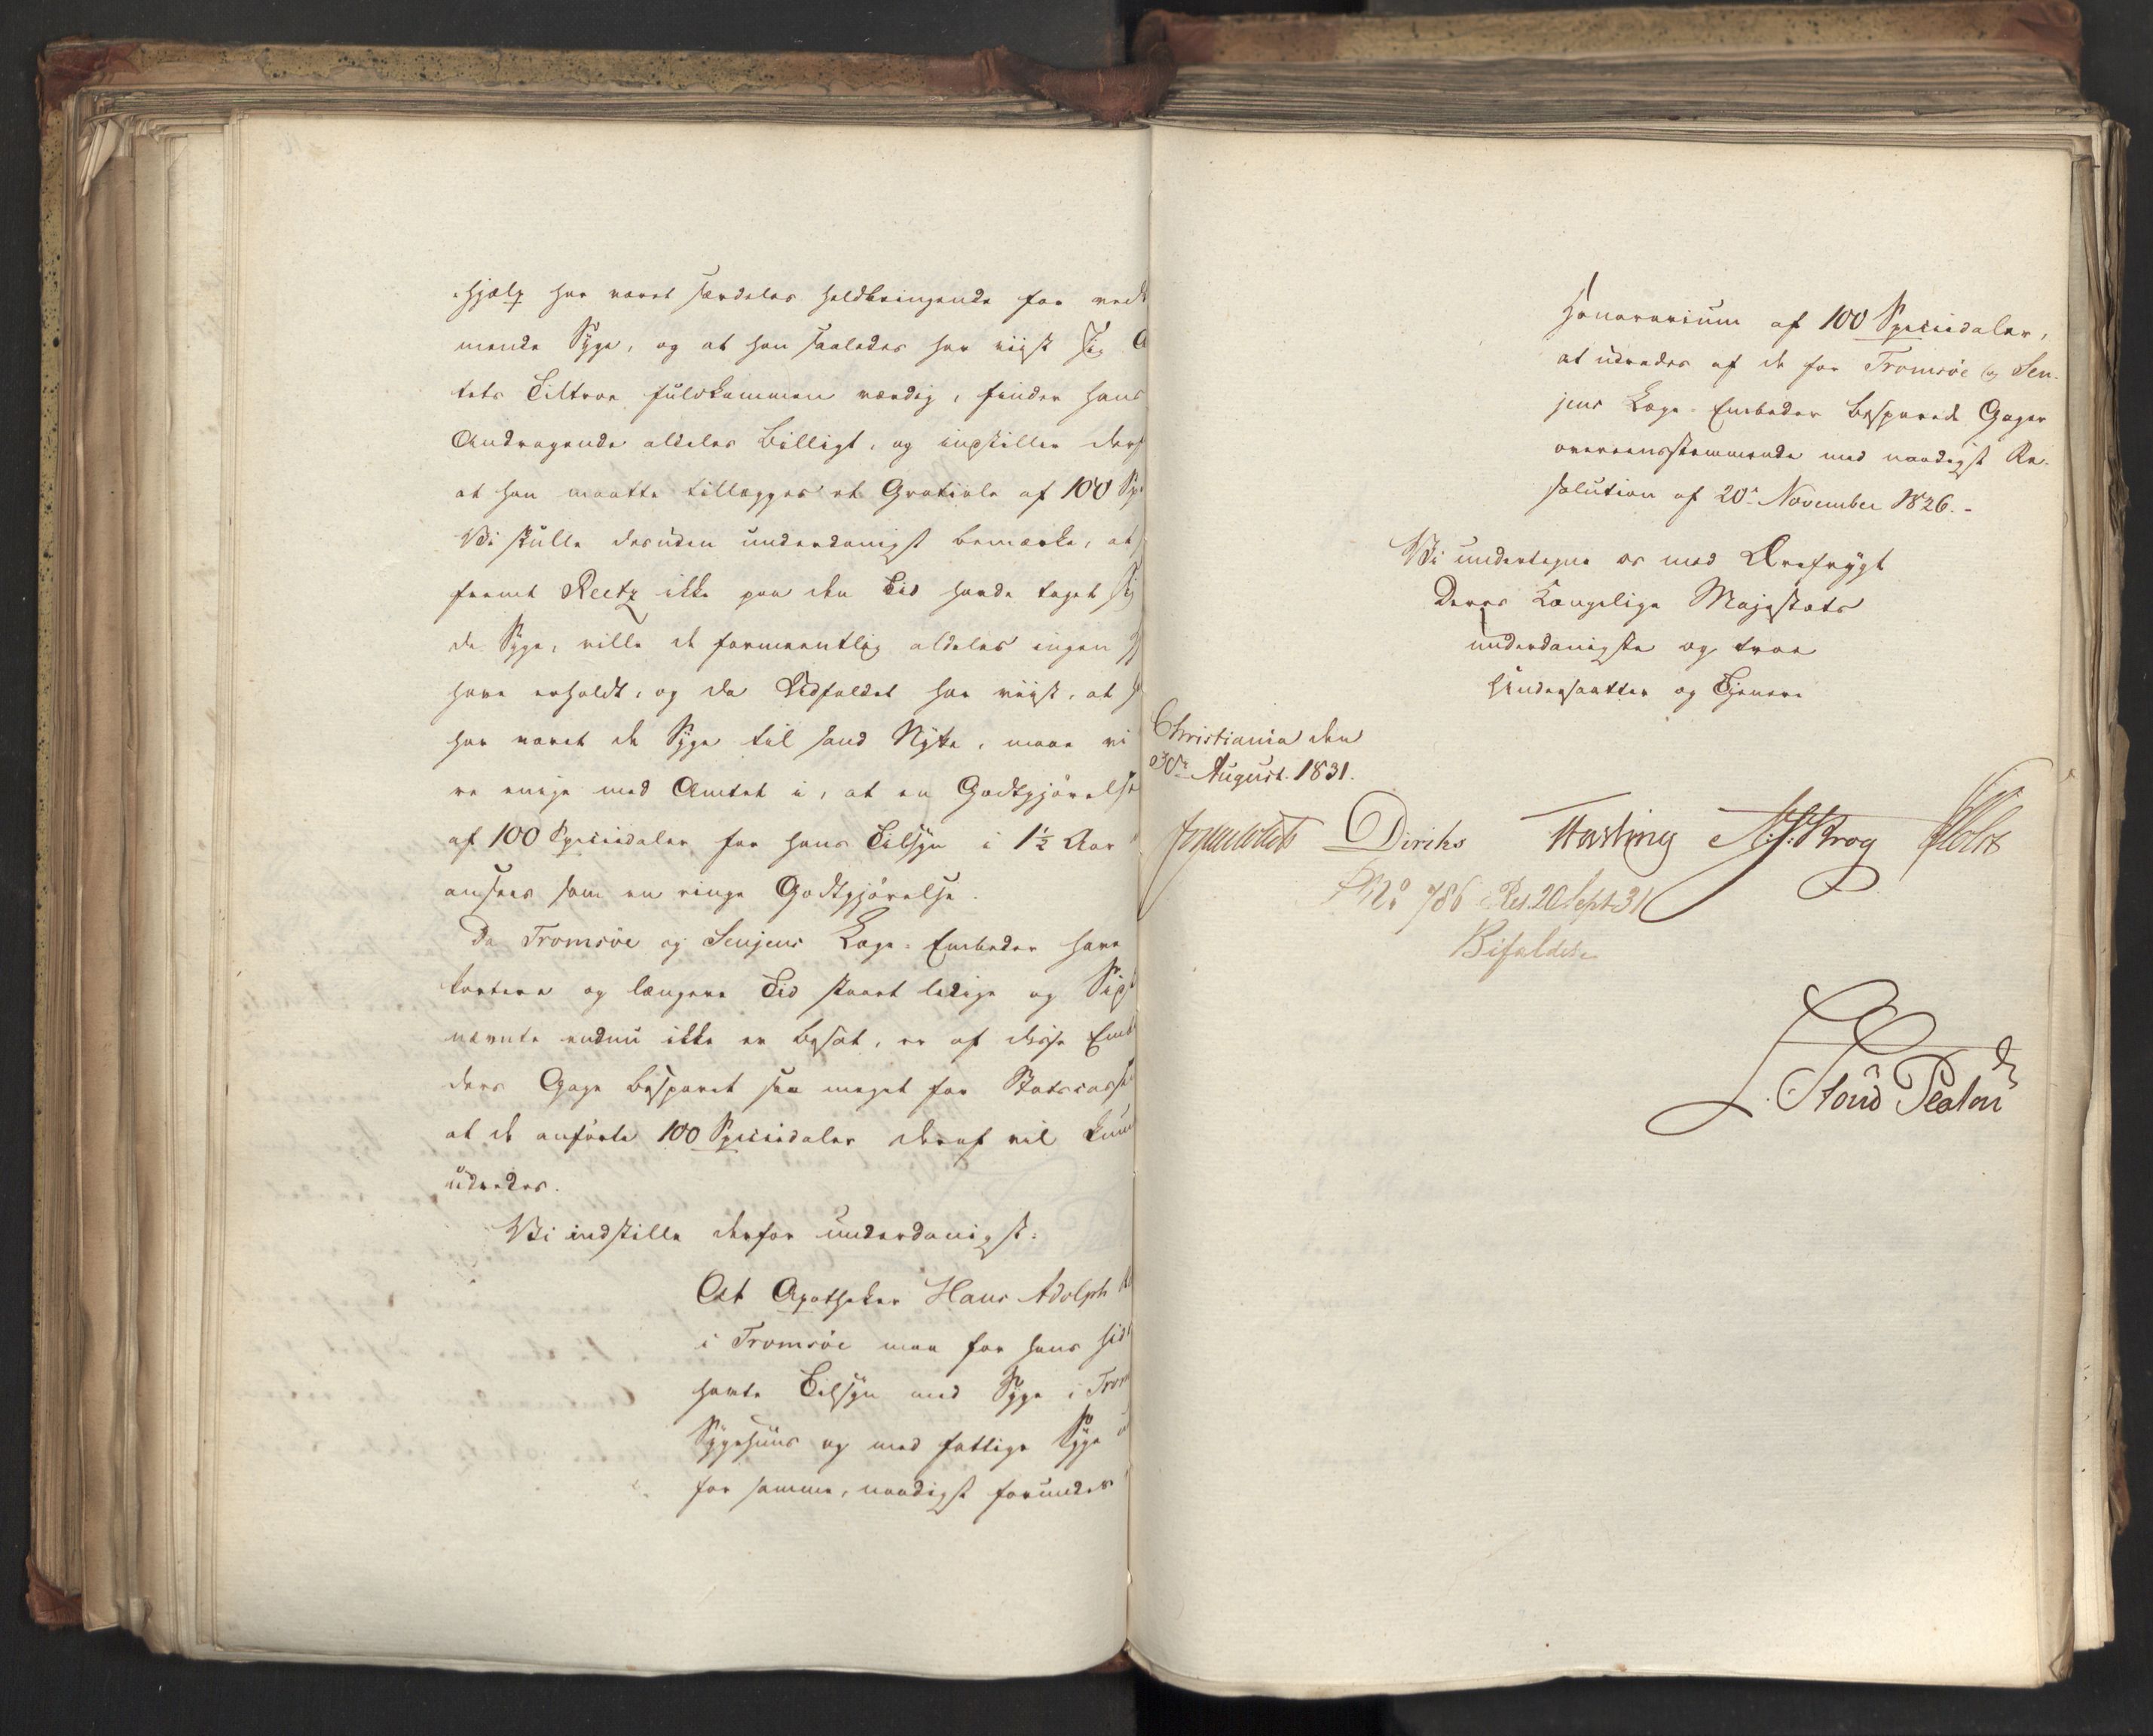 hjælp har været særdeles heldbringende for ved
mende Syge, og at han saaledes har viist sig A
tets Tiltroe fuldkommen værdig, finder hans
Andragende aldeles billigt, og indstiller der
at han maatte tillægges et Gratiale af 100 Sp
Vi skulle desuden underdanigst bemærke, at
fremt Reetz ikke paa den Tid havde taget sig
de Syge, ville de formeentlig aldeles ingen
have erholdt, og da Udfaldet har viist, at
har været de Syge til sand Nytte, maae vi
re enige med Amtet i, at en Godtgjörelse
af 100 Speciedaler for hans Tilsyn i 1½ Aar
ansees som en ringe Godtgjörelse.
Da Tromsöe og Senjens Læge-Embeder have
kortere og længere Tid staaet ledige og Sidst
nævnte endnu ikke er besat, er af disse Emb
ders Gage besparet saa meget for Statscassen
at de anförte 100 Speciedaler deraf vil kunn
udredes.
Vi indstille derfor underdanigst:
At Apotheker Hans Adolph
i Tromsöe maa for hans hid
havte Tilsyn med Syge i Trom
Sygehuus og med fattige Syge
for samme, naadigst forundes
Honorarium af 100 Speciedaler,
at udredes af de for Tromsöe og Sen-
jens Læge-Embeder besparede Gager
overeensstemmende med naadigst Re-
solution af 20de November 1826.-
Vi undertegne os med Ærefrygt
Deres Kongelige Majestæts
underdanigste og troe
Undersaatter og Tjenere
Christiania den
30te August 1831.
Diriks Fasting N. J. Krog Holst
No 786 Res. 20 Sept 31
Bifaldes